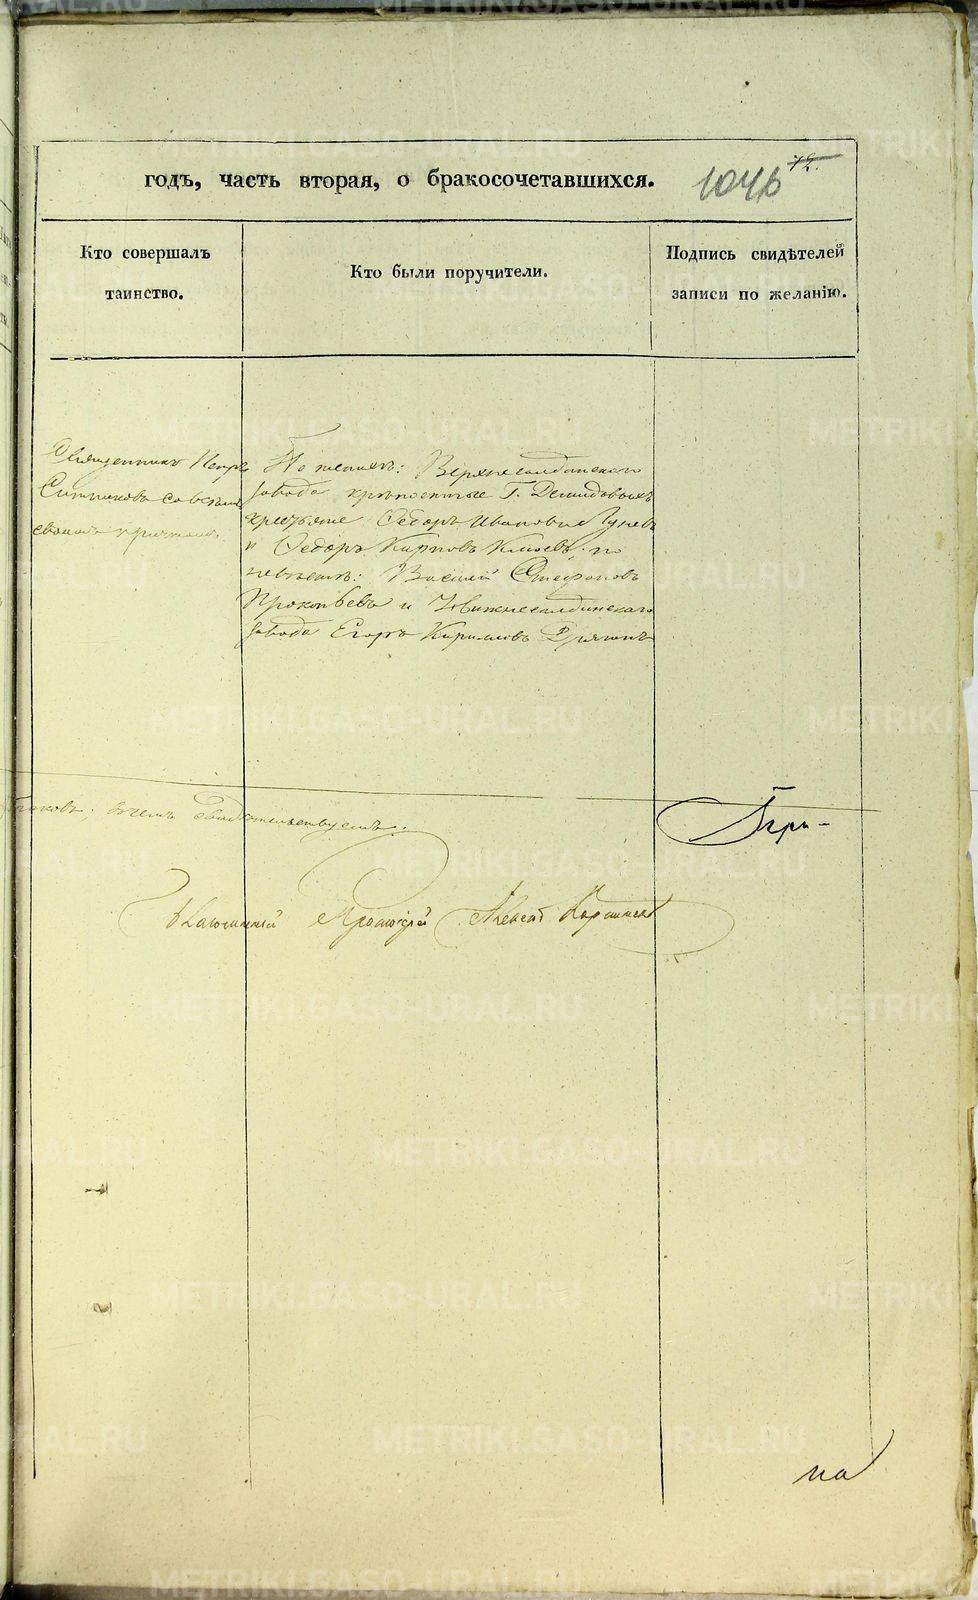 годъ, часть вторая, о бракосочетавшихся.
104б
72.
Кто совершалъ
таинство.
Кто были поручители.
Подпись свидѣтелей
записи по желанію.
Священникъ Петръ
Ситниковъ со всѣмъ
своимъ причтомъ
По женихѣ: Верхнесалдинскаго
завода крѣпостные Г. Демидовыхъ
крестьяне Ѳедоръ Ивановъ
и Ѳедоръ Карповъ по
невѣстѣ: Василій Стефановъ
Прокопьевъ и Нижнесалдинскаго
завода Егоръ Кириловъ
въ чемъ свидѣтельствуемъ.
Протоіерей Алексѣй
на
METRIKI.GASO-URAL.RU